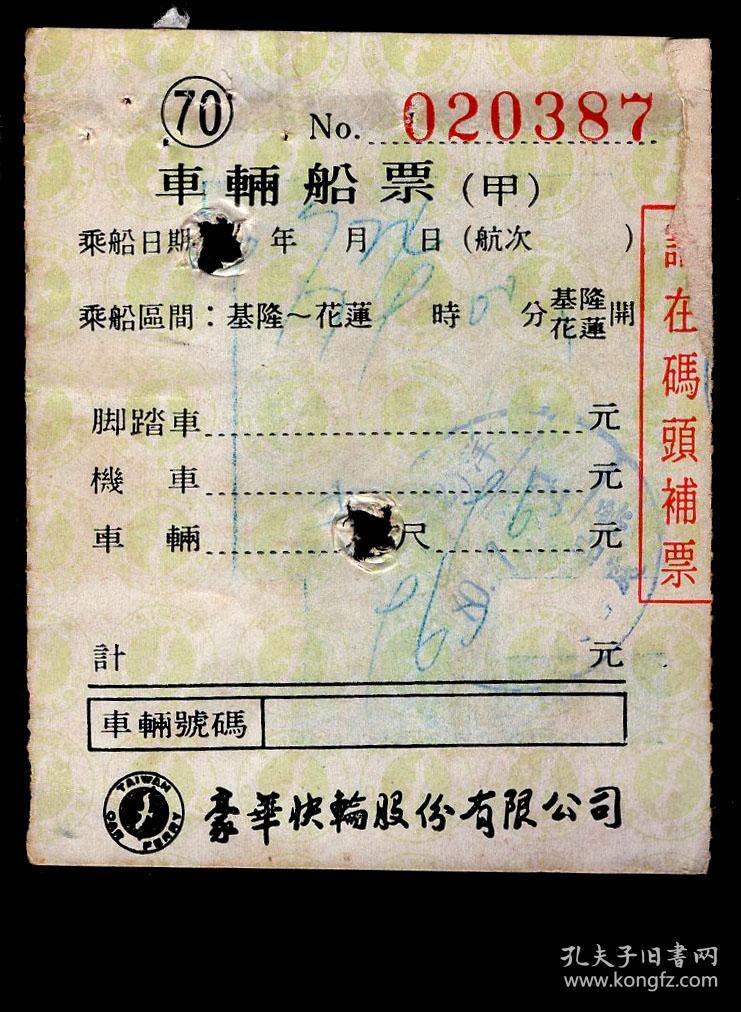 70
No. 020387
車輛船票(甲)
乘船日期 年 月 日(航次 )
乘船區間：基隆～花蓮 時 分 基隆 花蓮 開
脚踏車 元
機車 元
車輛 尺 元
計 元
車輛號碼
TAIWAN CAR FERRY
豪華快輪股份有限公司
在碼頭補票
孔夫子旧书网
www.kongfz.com